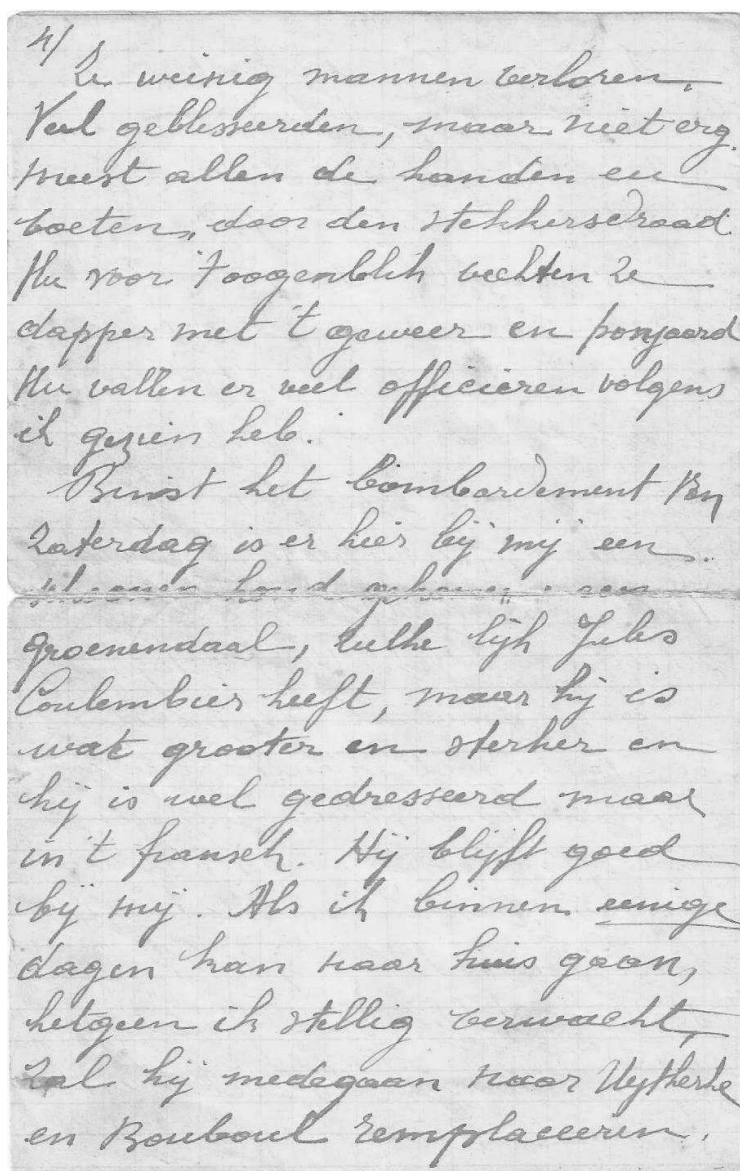 4/
Ze weinig mannen verloren.
Veel geblesseerden, maar niet erg.
meest allen de handen en
voeten, door den stekkersdraad.
Nu voor 't oogenblik vechten ze
dapper met 't geweer en ponjaard
Nu vallen er veel officieren volgens
ik gezien heb.
Binst het bombardement van
Zaterdag is er hier bij mij een
schoonen hond gekomen: een
groenendaal, zulke lijk Jules
Coulembier heeft, maar hij is
wat grooter en sterker en
hij is wel gedresseerd maar
in 't fransch. Hij blijft goed
bij mij. Als ik binnen eenige
dagen kan naar huis gaan,
hetgeen ik stellig verwacht,
zal hij medegaan naar Uytkerke
en Bouboul remplaceeren.